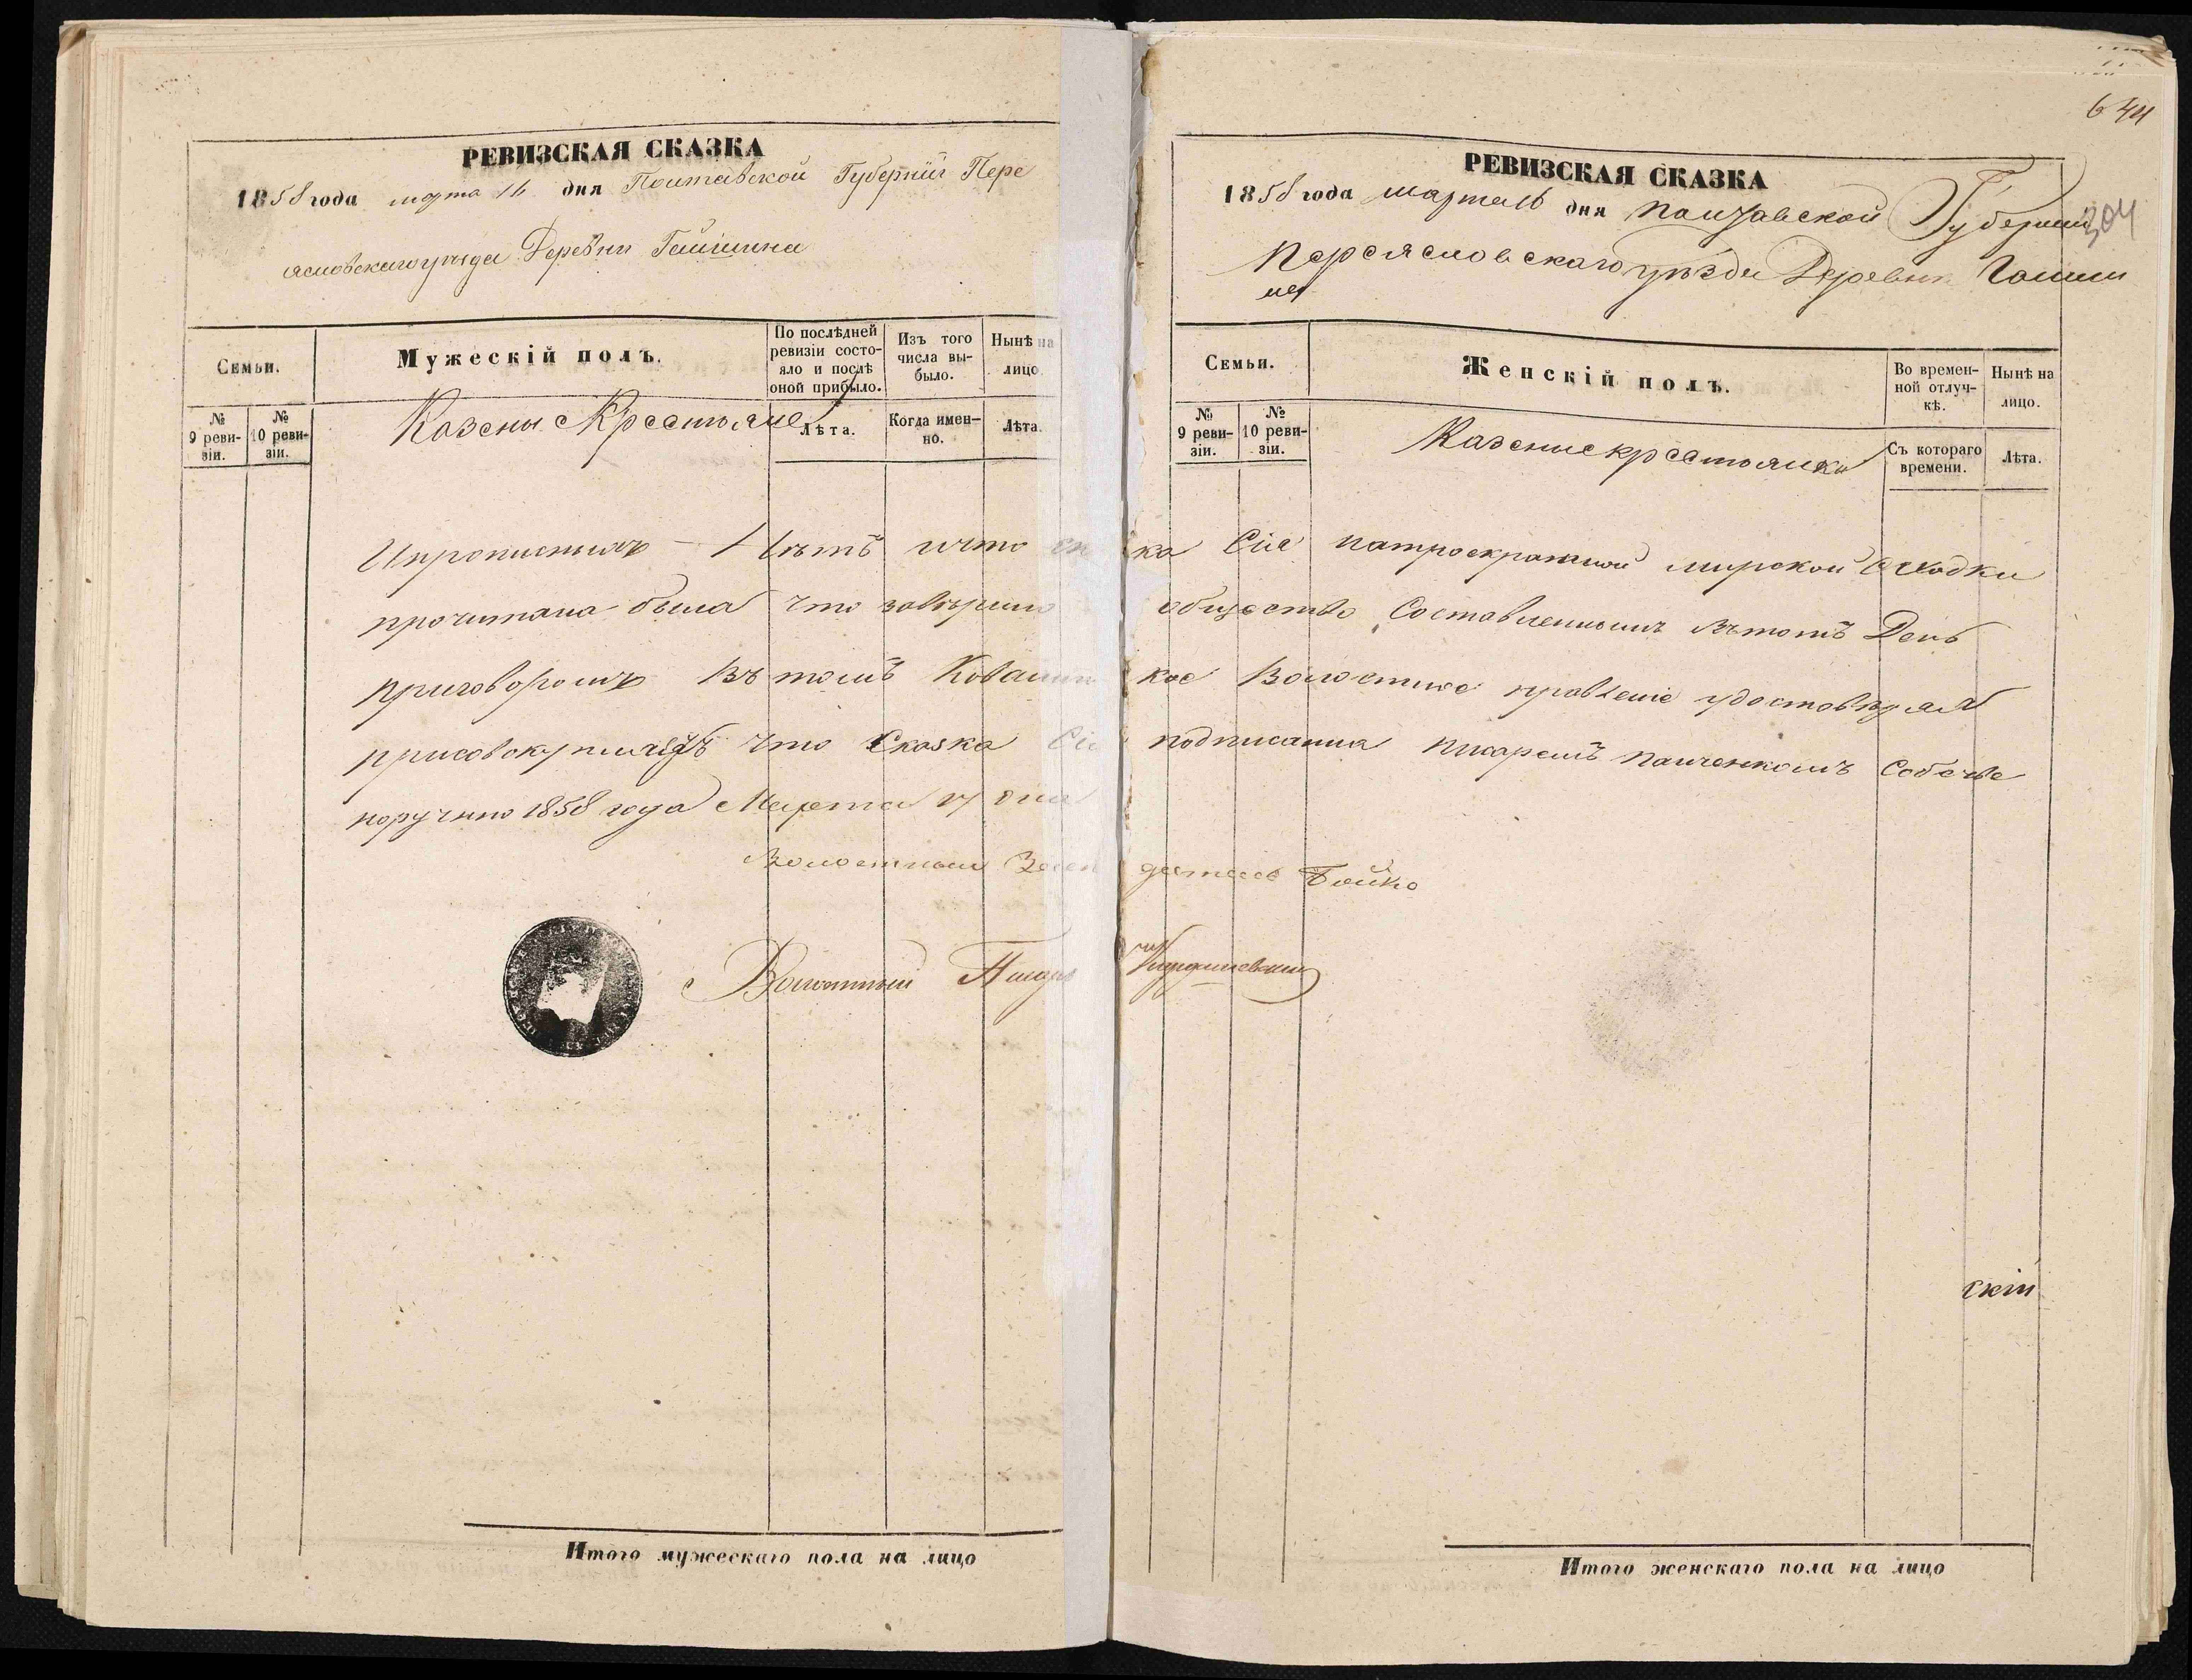 РЕВИЗСКАЯ СКАЗКА
1858 года марта 16 дня Полтавской Губерніи Пере
яславскаго уѣзда Деревни Гайшина
Семьи.
Мужескій полъ.
По послѣдней ревизіи состояло и послѣ оной прибыло.
Изъ того числа выбыло.
Нынѣ на лицо.
Казены Крестьяне
№ 9 ревизіи.
№ 10 ревизіи.
Лѣта.
Когда именно.
Лѣта.
644
304
РЕВИЗСКАЯ СКАЗКА
1858 года марта 16 дня Полтавской Губерніи
Переяславскаго уѣзда Деревни Гайши
на
Семьи.
Женскій полъ.
Во временной отлучкѣ.
Нынѣ на лицо.
Казение крестьянки
№ 9 ревизіи.
№ 10 ревизіи.
Съ котораго времени.
Лѣта.
Ипрописныхъ - Нѣтъ ичто ска Сія натроекратной мирской Сходки
прочитана была что завѣрило общество Составленнымъ Вътотъ День
приговоромъ Въ томъ Ковалинское Волостное правленіе удостовѣряя
присовокупляетъ что Сказка Сія подписанна писаремъ Панченкомъ Собстве
норучно 1858 года Марта 17 дня
Волостный Засѣдатель Бойко
Волостный Писарь
скій
Итого мужескаго пола на лицо
Итого женскаго пола на лицо